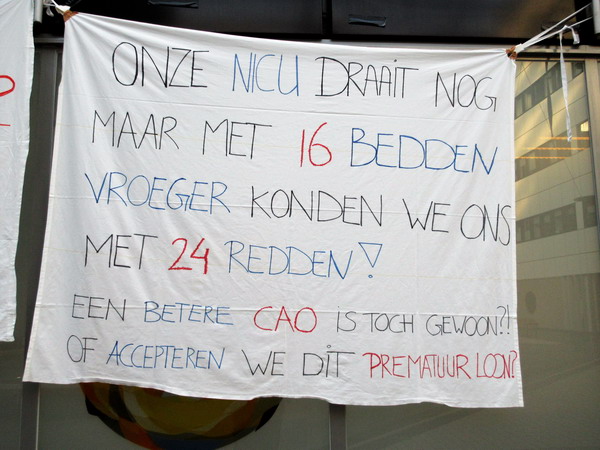 ONZE NICU DRAAIT NOG
MAAR MET 16 BEDDEN
VROEGER KONDEN WE ONS
MET 24 REDDEN!
EEN BETERE CAO IS TOCH GEWOON?!
OF ACCEPTEREN WE DIT PREMATUUR LOON?